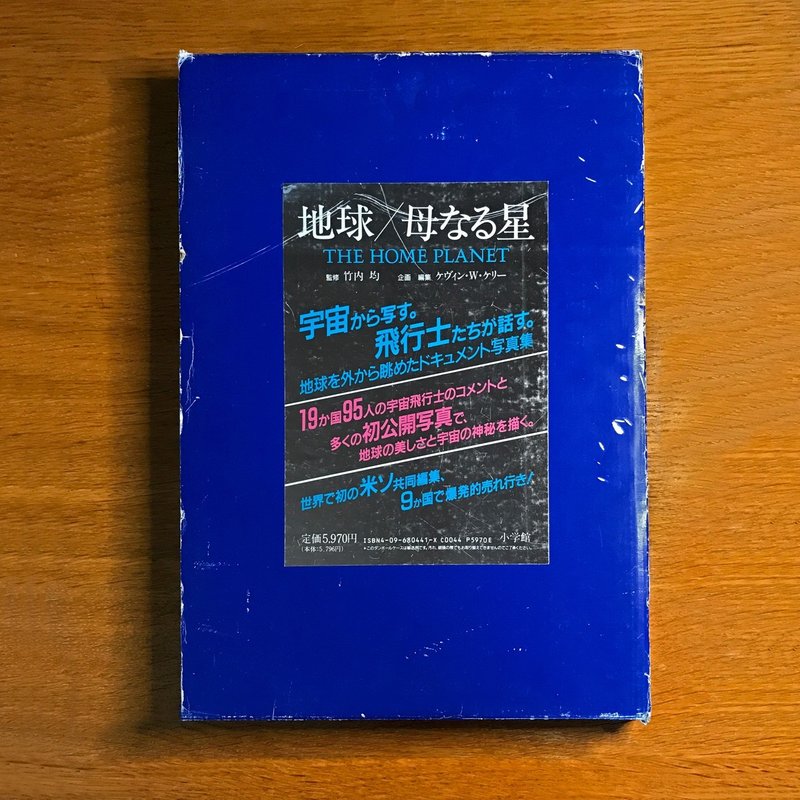 地球／母なる星
THE HOME PLANET
監修 竹内 均 企画 編集 ケヴィン・W・ケリー
宇宙から写す。
飛行士たちが話す。
地球を外から眺めたドキュメント写真集
19か国95人の宇宙飛行士のコメントと
多くの初公開写真で、
地球の美しさと宇宙の神秘を描く。
世界で初の米ソ共同編集、
9か国で爆発的売れ行き!
定価5,970円 ISBN4-09-680441-X C0044 P5970E 小学館
(本体5,796円) *このダンボールケースは輸送用です。汚れ、破損の際でもお取り替えできませんのでご了承ください。